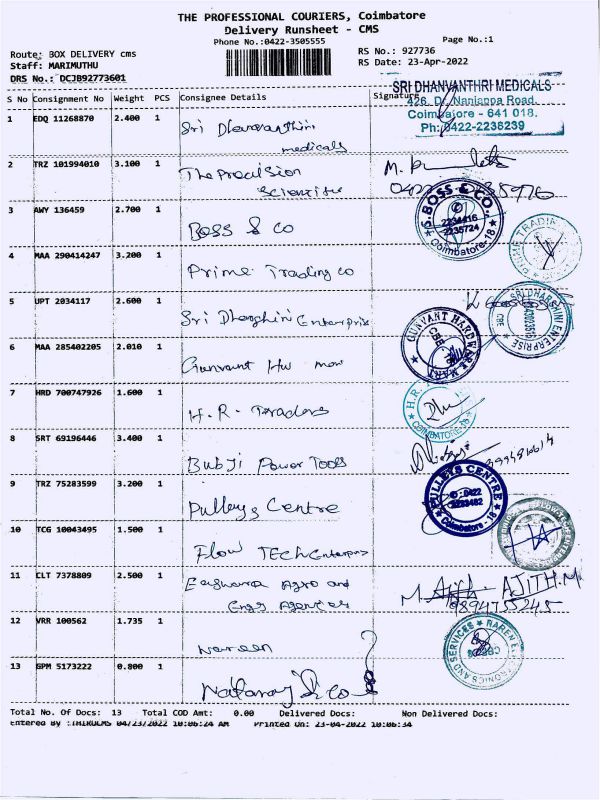 THE PROFESSIONAL COURIERS, Coimbatore
Delivery Runsheet - CMS
Phone No.:0422-3505555
Page No.:1
Route: BOX DELIVERY cms
RS No.: 927736
Staff: MARIMUTHU
RS Date: 23-Apr-2022
DRS No.: DCJB92773601
S No Consignment No Weight PCS Consignee Details Signature
SRI DHANVANTHRI MEDICALS
426, Dr. Nanjappa Road,
Coimbatore - 641 018.
Ph: 0422-2238239
1 EDQ 11268870 2.400 1 Sri Dhanvanthiri
medicals
2 TRZ 101994010 3.100 1 The precision
Scientific
3 AWY 136459 2.700 1 BOSS & CO
S.BOSS & CO.
2234416
2235724
Coimbatore-18
4 MAA 290414247 3.200 1 Prime Trading co
PRIME TRADING
5 UPT 2034117 2.600 1 Sri Dharshini Enterprise
SRI DHARSHINI ENTERPRISE
CBE
6 MAA 285402205 2.010 1 Gunvant Hw mart
GUNVANT HARDWARE MART
CBE
7 HRD 700747926 1.600 1 H.R. Traders
H.R.
COIMBATORE-18
8 SRT 69196446 3.400 1 Bubji Power Tools
9 TRZ 75283599 3.200 1 Pulleys Centre
PULLEYS CENTRE
0422
2233482
Coimbatore - 18
10 TCG 10043495 1.500 1 Flow TECH Enterprises
11 CLT 7378809 2.500 1 Eashwara Agro and
Engg Agencies
M. Ajith. AJITH.M
9894755245
12 VRR 100562 1.735 1 Nareen
NAREN ELECTRONICS AND SERVICES
13 GPM 5173222 0.800 1 Nataraj & co
Total No. Of Docs: 13 Total COD Amt: 0.00 Delivered Docs: Non Delivered Docs:
Entered By :THIRUCMS 04/23/2022 10:06:24 AM Printed On: 23-04-2022 10:06:34